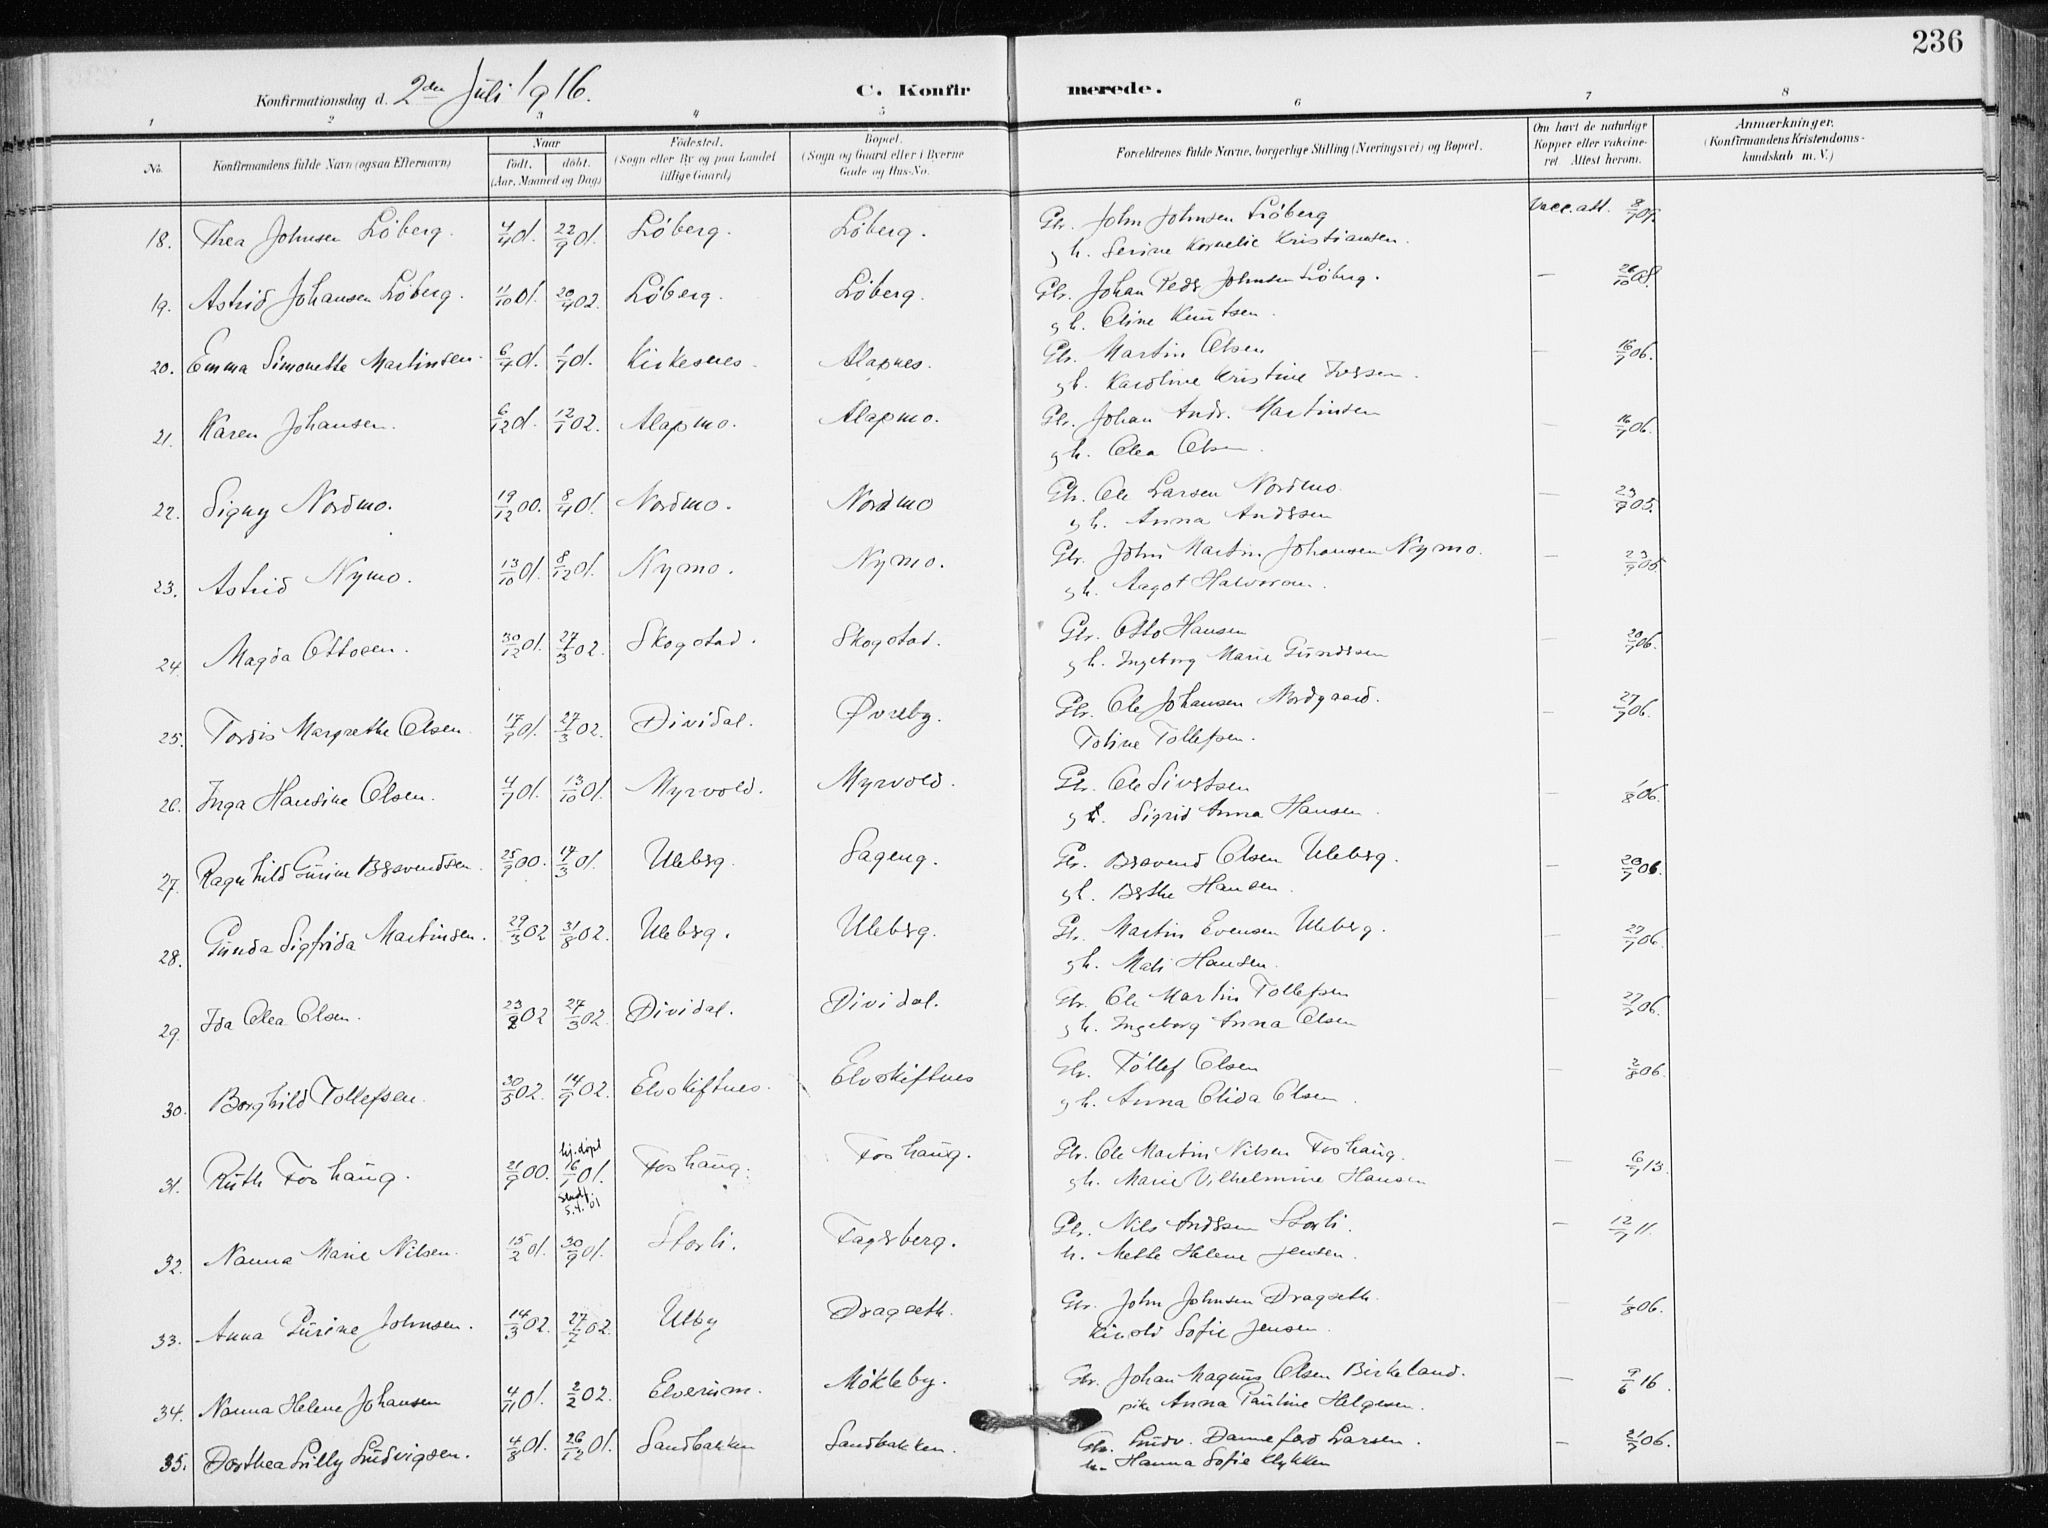 236
Konfirmationsdag d. 2den Juli 1916.
C. Konfirmerede.
1 2 3 4 5 6 7 8
No. Konfirmandens fulde Navn (ogsaa Efternavn) Naar født. døbt. (Aar, Maaned og Dag) Fødested. (Sogn eller By og paa Landet tillige Gaard) Bopæl. (Sogn og Gaard eller i Byerne Gade og Hus-No. Forældrenes fulde Navne, borgerlige Stilling (Næringsvei) og Bopæl. Om havt de naturlige Kopper eller vakcineret Attest herom. Anmærkninger. (Konfirmandens Kristendomskundskab m. V.)
18. Thea Johnsen Løberg. 4/4 01. 22/9 01. Løberg. Løberg. Gbr. John Johnsen Løberg Vacc. att. 8/9 09.
g h. Serine Kornelie Kristiansen.
19. Astrid Johansen Løberg. 11/10 01. 20/4 02. Løberg. Løberg. Gbr. Johan Peder Johnsen Løberg. — 26/10 08.
g h. Oline Knutsen.
20. Emma Simonette Martinsen. 6/4 01. 1/7 01. Kirkesnes. Alapnes. Gbr. Martin Olsen — 16/7 06.
g h. Karoline Kristine Iversen.
21. Karen Johansen. 6/12 01. 12/1 02. Alapmo. Alapmo. Gbr. Johan Andr. Martinsen — 16/7 06.
g h. Olea Olsen
22. Signy Nordmo. 19/12 00. 8/4 01. Nordmo. Nordmo Gbr. Ole Larsen Nordmo. — 23/9 05.
g h. Anna Anderssen
23. Astrid Nymo. 13/10 01. 8/12 01. Nymo. Nymo. Gbr. John Martin Johansen Nymo. — 23/9 05
g h. Aagot Halvorsen.
24. Magda Ottosen. 30/12 01. 27/3 02. Skogstad. Skogstad. Gbr. Otto Hansen — 20/7 06.
g h. Ingeborg Marie Gunderssen
25. Tordis Margrethe Olsen. 17/9 01. 27/3 02. Dividal. Øvreby. Gbr. Ole Johansen Nordgaard. — 27/7 06.
Toline Tollefsen.
26. Inga Hansine Olsen. 4/7 01. 13/10 01. Myrvold. Myrvold. Gbr. Ole Sivertsen — 1/8 06.
g h. Sigrid Anna Hansen.
27. Ragnhild Gurine Bersvendsen. 25/9 00. 14/3 01. Uleberg. Sageng. Gbr. Bersvend Olsen Uleberg. — 20/7 06.
g h. Berthe Hansen.
28. Gunda Sigfrida Martinsen. 29/3 02 31/8 02. Uleberg. Uleberg. Gbr. Martin Evensen Uleberg. — 27/7 06.
g h. Mali Hansen.
29. Ida Olea Olsen. 23/2 02 24/3 02. Dividal. Dividal. Gbr. Ole Martin Tollefsen — 27/7 06.
g h. Ingeborg Anna Olsen
30. Borghild Tollefsen. 30/5 02. 14/9 02. Elvskiftnes. Elvskiftnes Gbr. Tøllef Olsen — 2/8 06.
g h. Anna Elida Olsen.
31. Ruth Foshaug. 21/9 00. hj. døpt 16/1 01. Stadf. 5.4.01 Foshaug. Foshaug. Gbr. Ole Martin Nilsen Foshaug. — 6/7 13.
g h. Marie Vilhelmine Hansen
32. Nanna Marie Nilsen. 15/2 01. 30/9 01. Storli. Fagerberg. Gbr. Nils Anderssen Storli. — 12/7 11.
h. Mette Helene Jensen.
33. Anna Purine Johnsen. 14/3 02. 27/7 02. Utby Dragseth. Gbr. John Johnsen Dragseth. — 1/8 06.
Kinold Sofie Jensen.
34. Nanna Helene Johansen 4/11 01. 2/2 02. Elverum. Møkleby. Gbr. Johan Magnus Olsen Birkeland. — 9/6 16.
pike Anna Pauline Helgesen.
35. Dorthea Lilly Ludvigsen. 4/8 01. 26/12 01. Sandbakken Sandbakken. Gbr. Ludv. Danneferd Larsen. — 21/7 06.
h. Hanna Sofie Klykken